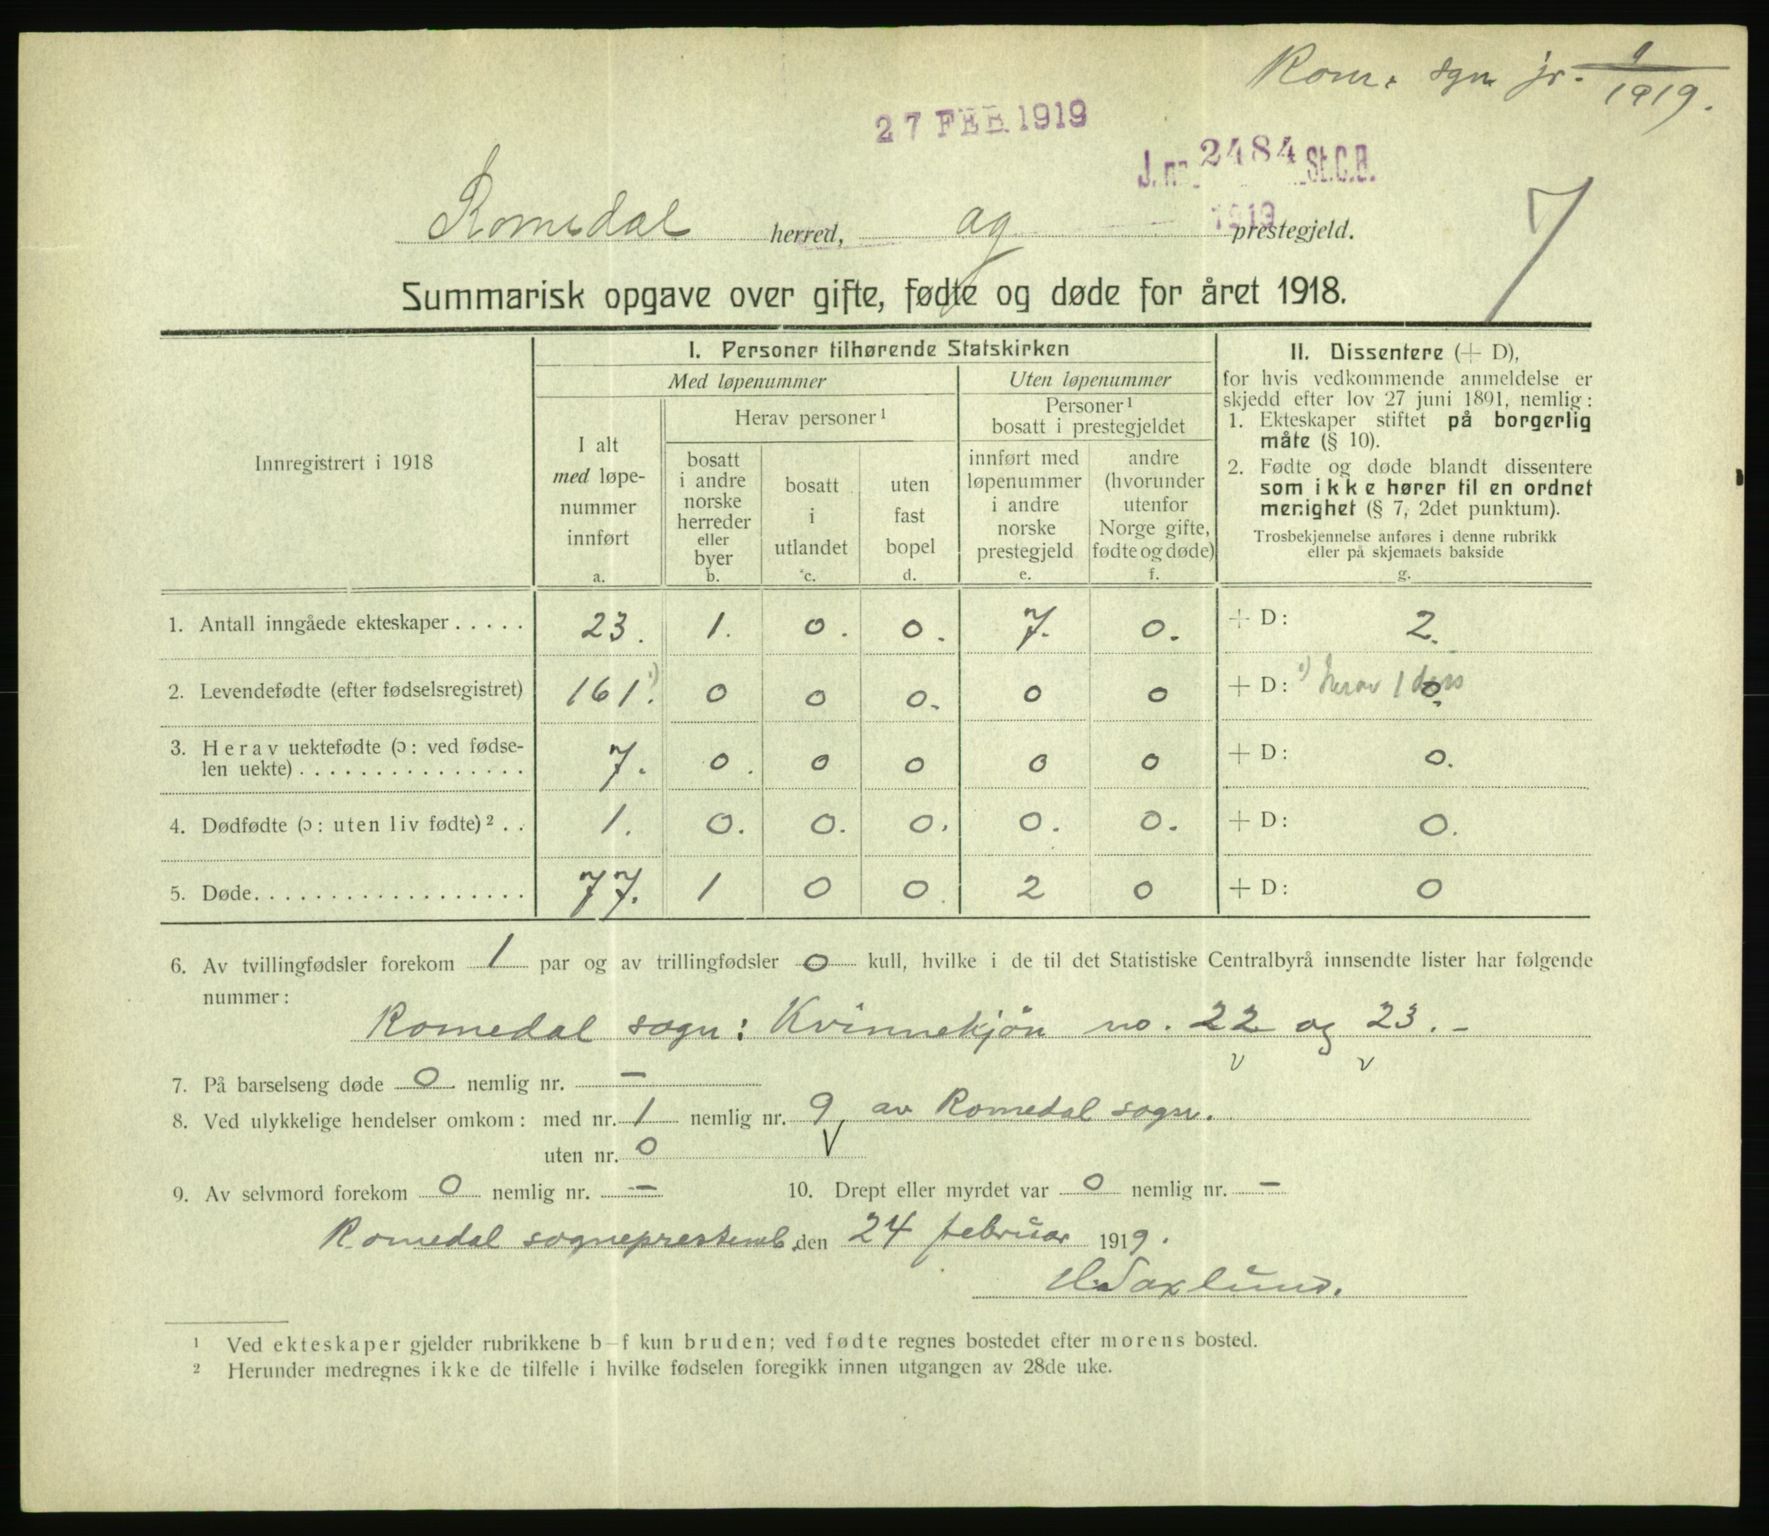 Rom. sgn jr. 1/1919.
27 FEB 1919
J. nr. 2484 St.C.B.
1919
Romedal herred, og prestegjeld.
7
Summarisk opgave over gifte, fødte og døde for året 1918.
Innregistrert i 1918
I. Personer tilhørende Statskirken
Med løpenummer
Uten løpenummer
I alt
med løpe-
nummer
innført
a.
Herav personer ¹
bosatt
i andre
norske
herreder
eller
byer
b.
bosatt
i
utlandet
c.
uten
fast
bopel
d.
Personer ¹
bosatt i prestegjeldet
innført med
løpenummer
i andre
norske
prestegjeld
e.
andre
(hvorunder
utenfor
Norge gifte,
fødte og døde)
f.
II. Dissentere (+ D),
for hvis vedkommende anmeldelse er
skjedd efter lov 27 juni 1891, nemlig:
1. Ekteskaper stiftet på borgerlig
måte (§ 10).
2. Fødte og døde blandt dissentere
som ikke hører til en ordnet
menighet (§ 7, 2det punktum).
Trosbekjennelse anføres i denne rubrikk
eller på skjemaets bakside
g.
1. Antall inngåede ekteskaper . . . . . 23. 1. 0. 0. 7. 0. + D: 2.
2. Levendefødte (efter fødselsregistret) 161 ¹). 0 0 0. 0 0 + D: ¹) herav 1 døss 0.
3. Herav uektefødte (ɔ: ved fødse-
len uekte) . . . . . . . . . . . . . . . 7. 0. 0 0 0 0 + D: 0.
4. Dødfødte (ɔ: uten liv fødte) ² . . 1. 0. 0. 0. 0. 0. + D: 0.
5. Døde. . . . . . . . . . . . . . . . . . 77. 1 0 0 2 0 + D: 0
6. Av tvillingfødsler forekom 1 par og av trillingfødsler 0 kull, hvilke i de til det Statistiske Centralbyrå innsendte lister har følgende
nummer:
Romedal sogn: Kvinnekjön no. 22 og 23. -
v v
7. På barselseng døde 0 nemlig nr. —
8. Ved ulykkelige hendelser omkom: med nr. 1 nemlig nr. 9, av Romedal sogn.
uten nr. 0 V
9. Av selvmord forekom 0 nemlig nr. — 10. Drept eller myrdet var 0 nemlig nr. —
Romedal sogneprestemb. den 24 februar 1919.
H. Saxlund.
¹ Ved ekteskaper gjelder rubrikkene b–f kun bruden; ved fødte regnes bostedet efter morens bosted.
² Herunder medregnes ikke de tilfelle i hvilke fødselen foregikk innen utgangen av 28de uke.